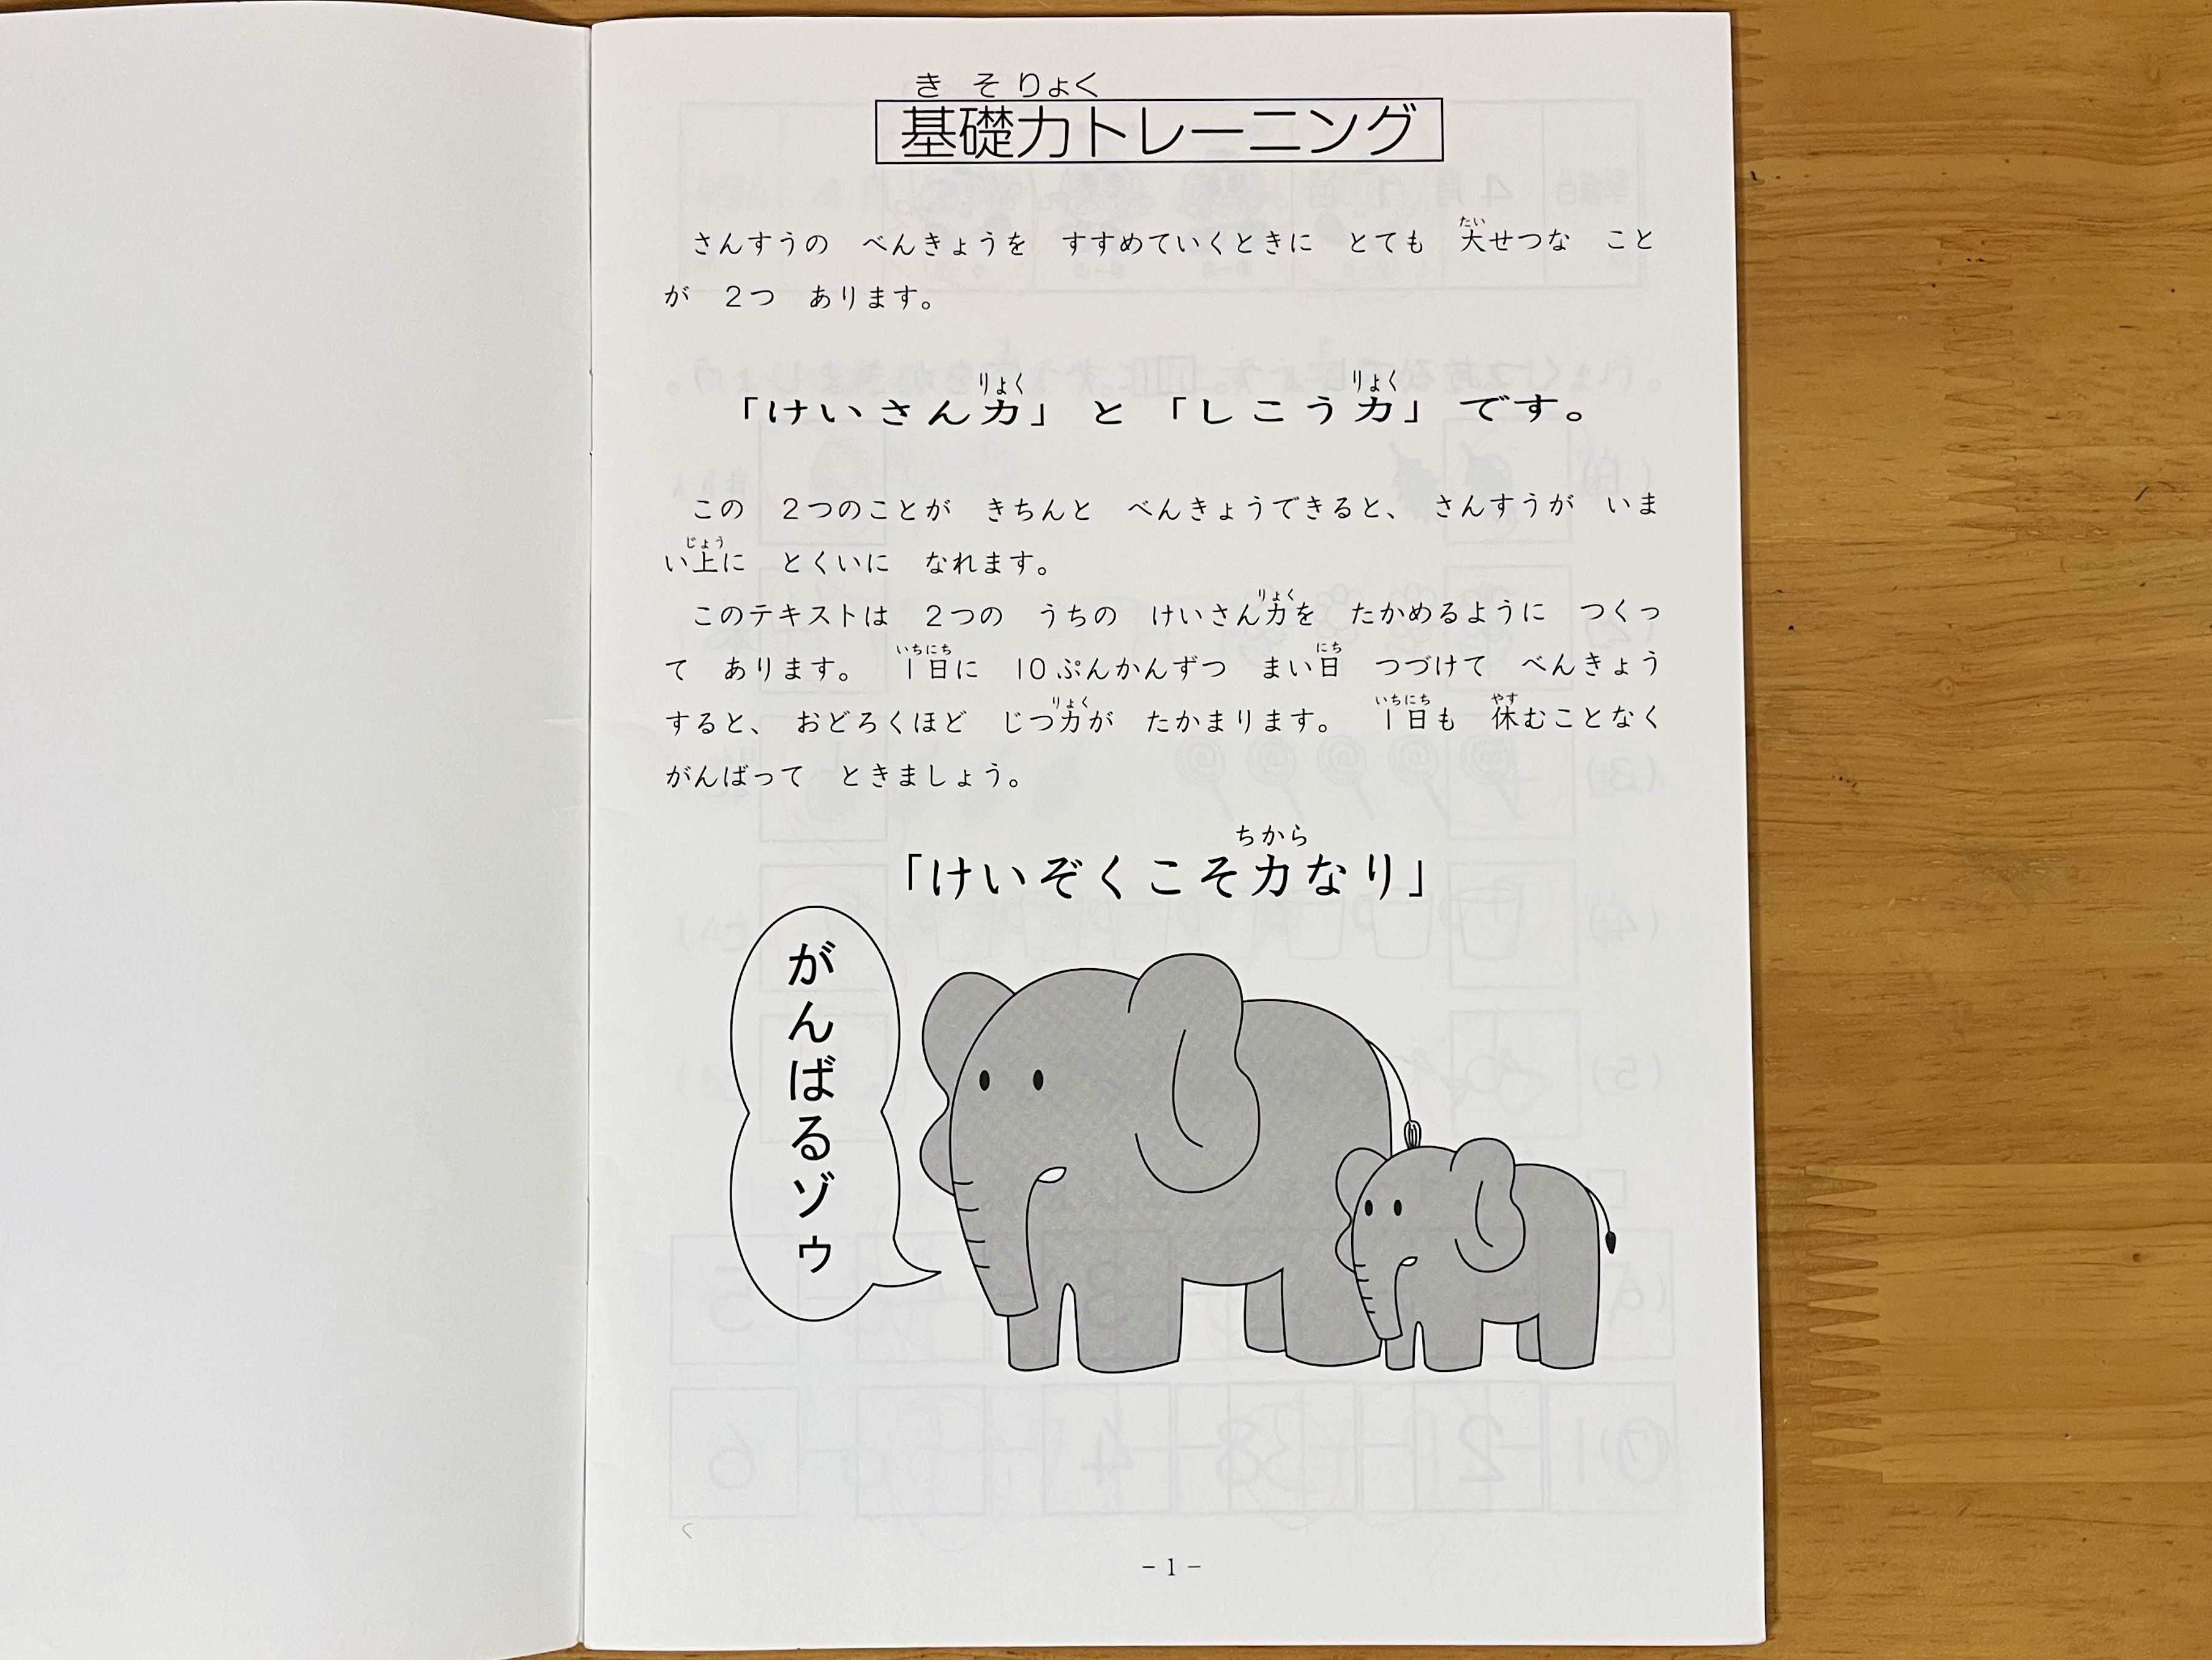 きそりょく
基礎力トレーニング
さんすうの　べんきょうを　すすめていくときに　とても　大せつな　こと
が　2つ　あります。
「けいさん力」と「しこう力」です。
この　2つのことが　きちんと　べんきょうできると、さんすうが　いま
い上に　とくいに　なれます。
このテキストは　2つの　うちの　けいさん力を　たかめるように　つくっ
て　あります。　1日に　10ぷんかんずつ　まい日　つづけて　べんきょう
すると、おどろくほど　じつ力が　たかまります。　1日も　休むことなく
がんばって　ときましょう。
「けいぞくこそ力なり」
がんばるゾゥ
- 1 -